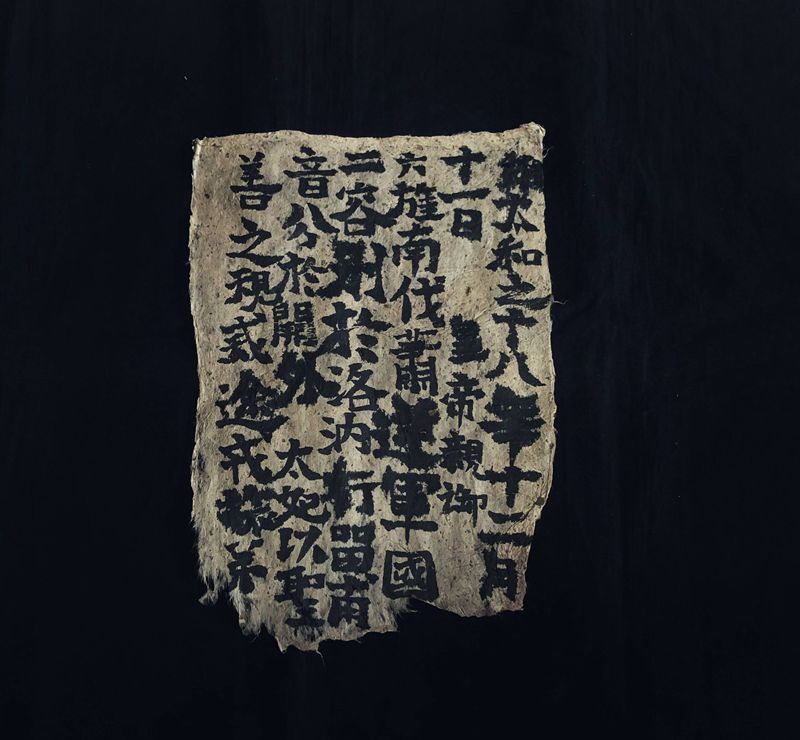 維太和之十八年十二月
十一日 皇帝親御
六旌南伐蕭逆軍國
二容別於洛汭行留兩
音分於闕外 太妃以聖
善之規戒途戒旅弟